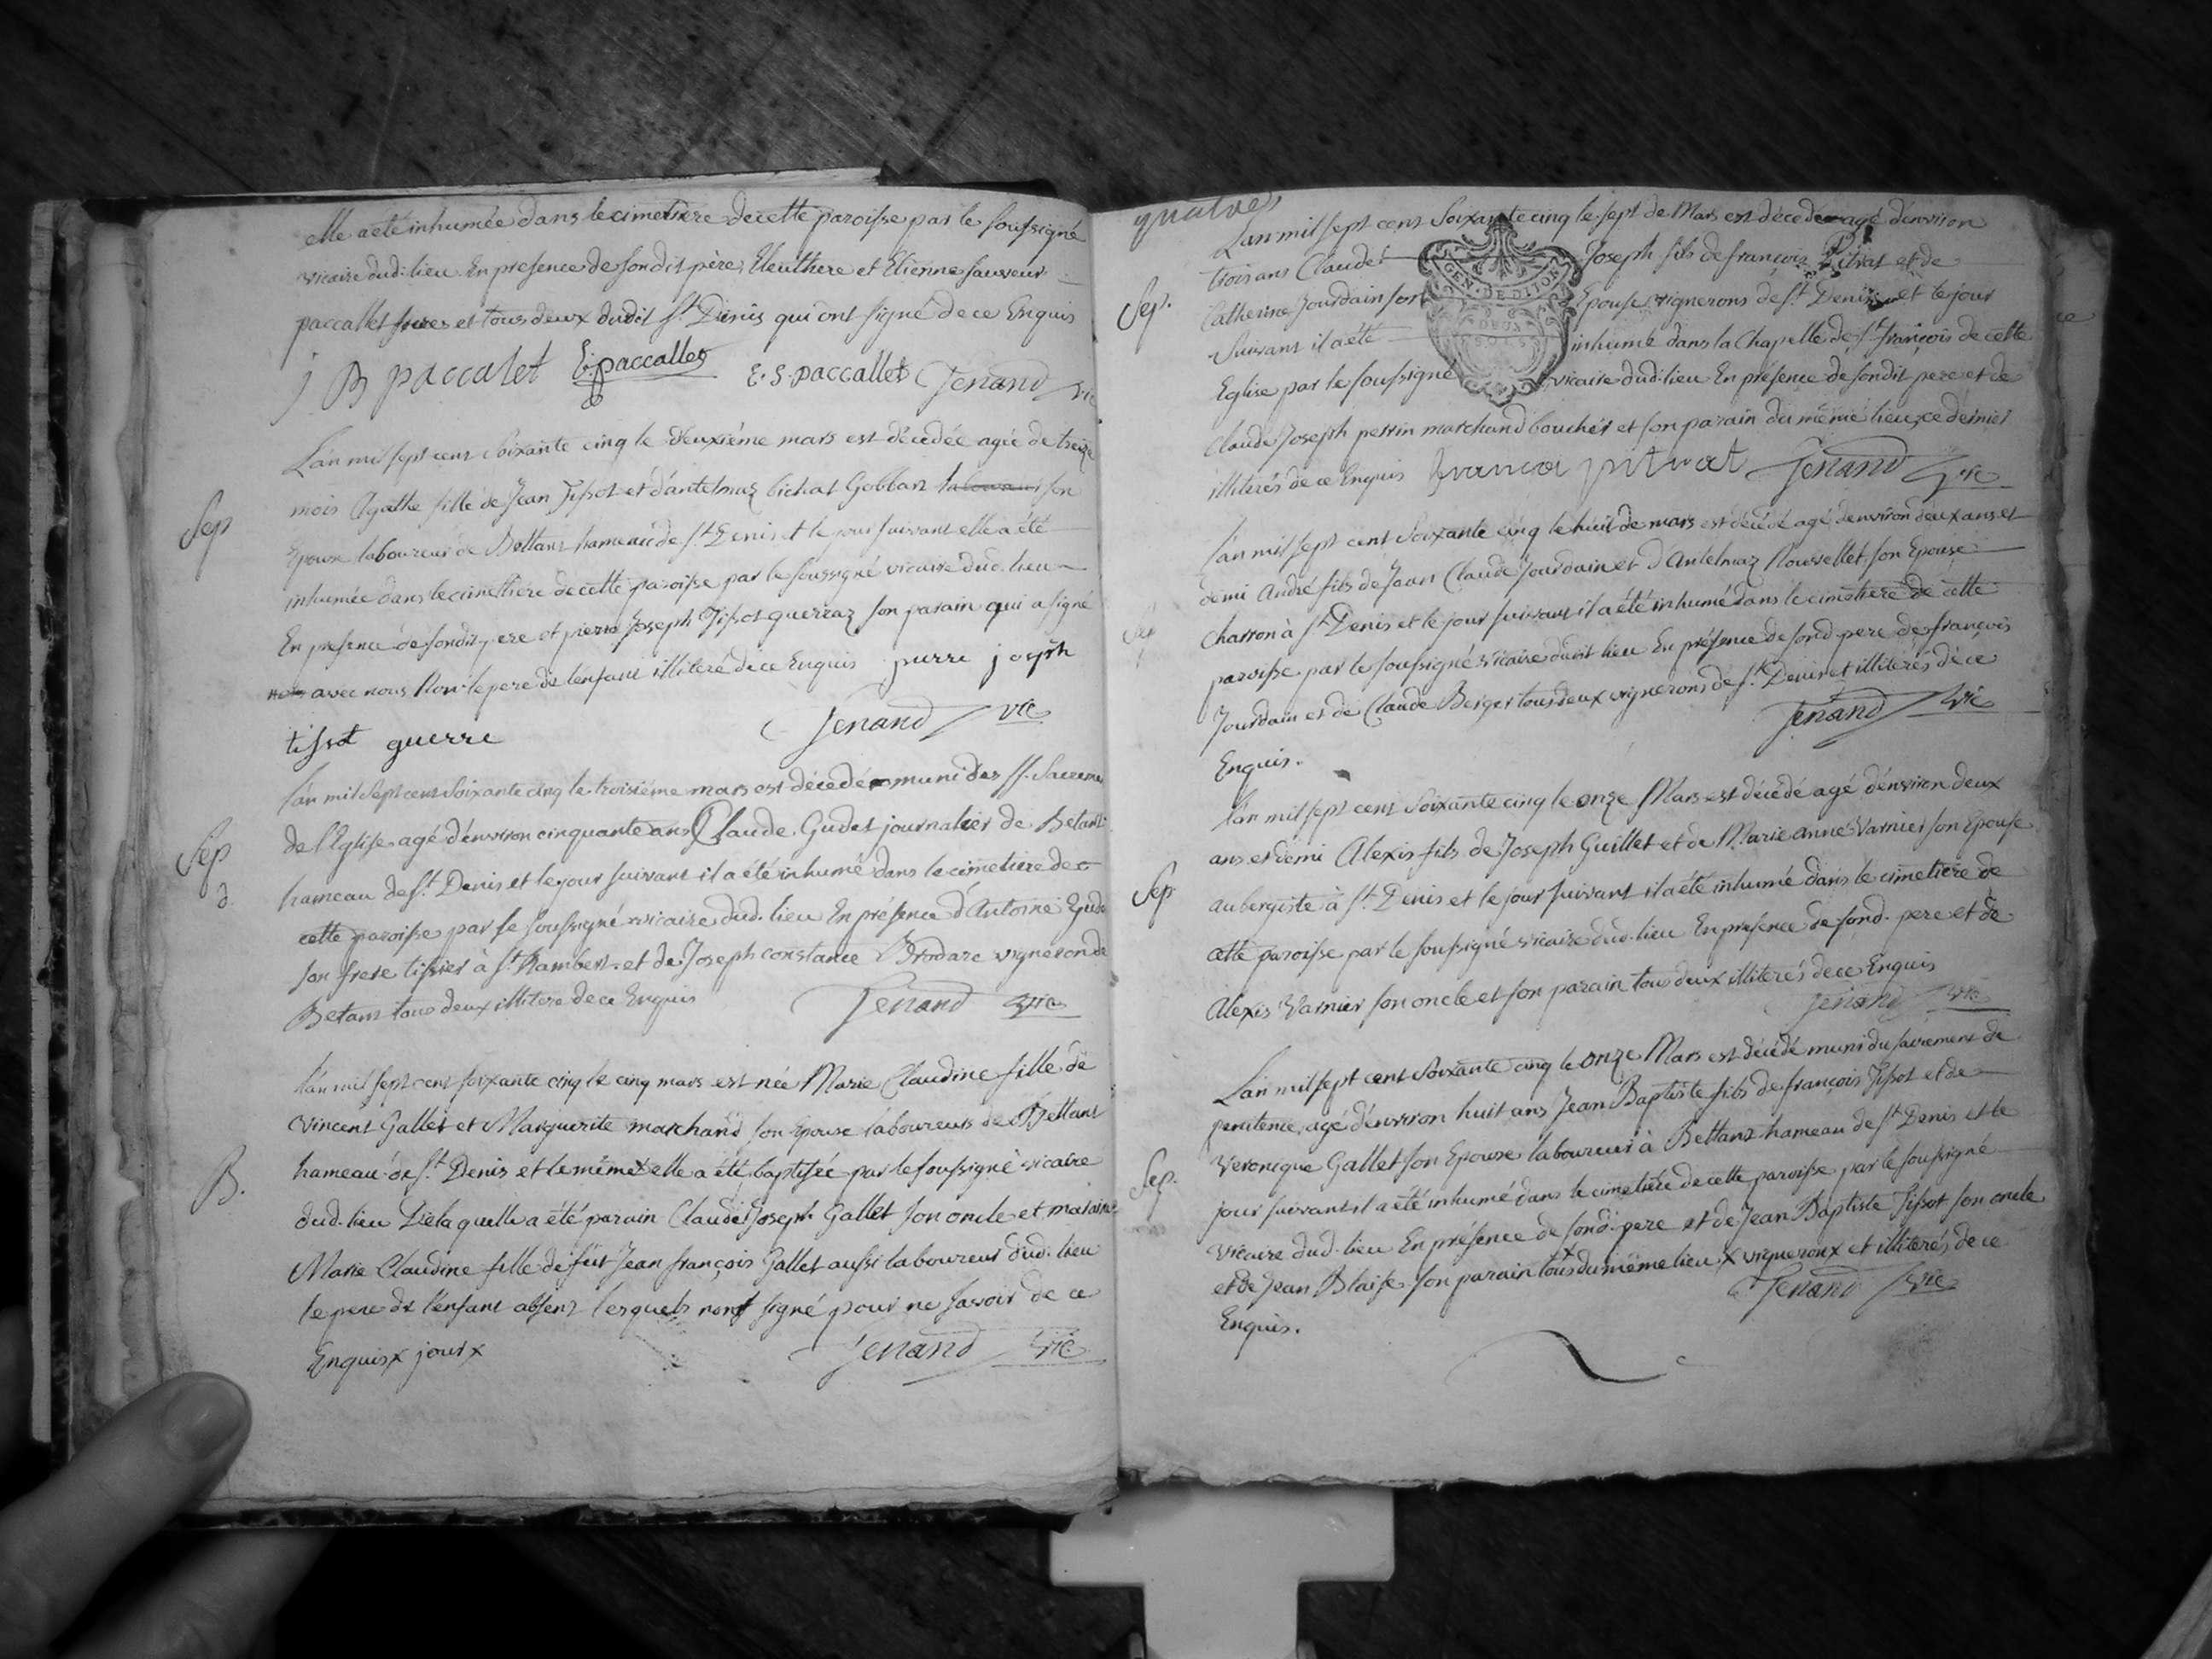 elle a eté inhumée dans le cimetiere de cette paroisse par le soussigné
vicaire dud. lieu En presence de son dit père, Eleuthere et Etienne sauveur
paccallet freres et tous deux dudit St. Denis qui ont signé de ce Enquis
j B paccalet E. paccallet E. S. paccallet Jenand vic
L'an mil sept cent soixante cinq le deuxiéme mars est décedée agée de treize
Sep mois Agathe fille de Jean Tissot et d'antelmaz bichat Gobban son
Epouse laboureur de Bettant hameau de St. Denis et le jour suivant elle a été
inhumée dans le cimetiere de cette paroisse par le soussigné vicaire dud. lieu
En presence de son dit pere et pierre Joseph Tissot guerraz son parain qui a signé
avec nous Non le pere de l'enfant illiteré de ce Enquis pierre joseph
tissot guerre Jenand vic
L'an mil sept cent soixante cinq le troisiéme mars est décedé muni des SS. Sacrem
Sep de l'Eglise agé d'environ cinquante ans Claude Gudet journalier de Betant
d. hameau de St. Denis et le jour suivant il a été inhumé dans le cimetiere de
cette paroisse par le soussigné vicaire dud. lieu En présence d'Antoine Gude
son frere tissier à St. Rambert et de Joseph constance Brodare vigneron de
Betant tous deux illitere de ce Enquis Jenand vic
L'an mil sept cent soixante cinq le cinq mars est née Marie Claudine fille de
vincent Gallet et Marguerite marchand son Epouse laboureurs de Bettant
B. hameau de St. Denis et le mème x elle a été baptisée par le soussigné vicaire
dud. lieu De laquelle a été parain Claude Joseph Gallet son oncle et maraine
Marie Claudine fille de fut Jean françois Gallet aussi laboureur dud. lieu
le pere de l'enfant absent lesquels n'ont signé pour ne savoir de ce
Enquis x jour x Jenand vic
quatre
L'an mil sept cent Soixante cinq le sept de Mars est décedé agé d'environ
trois ans Claude Joseph fils de françois Pitrat et de
Sep. Catherine Jourdain son Epouse vignerons de St. Denis et le jour
GEN. DE DIJON
DEUX
Suivant il a été inhumé dans la Chapelle de St. françois de cette
Eglise par le soussigné vicaire dud. lieu En présence de son dit pere et de
Claude Joseph perrin marchand boucher et son parain du méme lieu, ce dernier
illiterés de ce Enquis francoi pitrat Jenand vic
L'an mil sept cent Soixante cinq le huit de mars est décédé agé d'environ deux ans et
demi André fils de Jean Claude Jourdain et d'Antelmaz Roussellet son Epouse
Sep charron à St. Denis et le jour suivant il a été inhumé dans le cimetiere de cette
paroisse par le soussigné vicaire dudit lieu En présence de sond. pere de françois
Jourdain et de Claude Berger tous deux vignerons de St. Denis et illiterés de ce
Enquis. Jenand vic
L'an mil sept cent Soixante cinq le onze Mars est décédé agé d'environ deux
ans et demi Alexis fils de Joseph Guillet et de Marie anne Varnier son Epouse
Sep aubergiste à St. Denis et le jour suivant il a été inhumé dans le cimetiere de
cette paroisse par le soussigné vicaire dud. lieu En presence de sond. pere et de
Alexis Varnier son oncle et son parain tous deux illiterés de ce Enquis
Jenand vic
L'an mil sept cent Soixante cinq le onze Mars est décédé muni du sacrement de
penitence, agé d'environ huit ans Jean Baptiste fils de françois Tissot et de
Veronique Gallet son Epouse laboureur à Bettant hameau de St. Denis et le
Sep. jour suivant il a été inhumé dans le cimetière de cette paroisse par le soussigné
Vicaire dud. lieu En présence de sond. pere et de Jean Baptiste Tissot son oncle
et de Jean Blaise son parain tous du même lieu x vigneron x et illiterés de ce
Enquis. Jenand vic